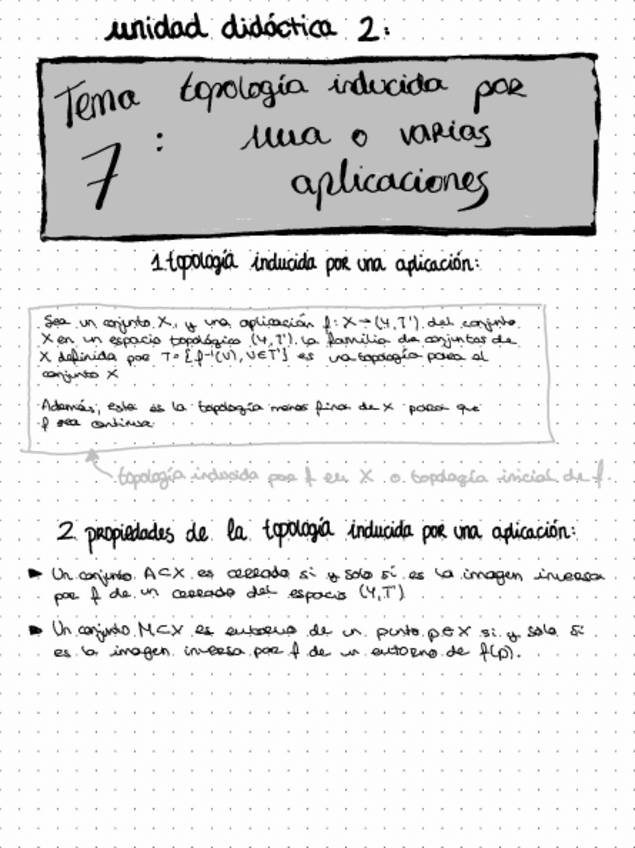 unidad didáctica 2:
Tema 7: topología inducida por
una o varias
aplicaciones
1. topología inducida por una aplicación:
Sea un conjunto X, y una aplicación f: X → (Y, T') del conjunto
X en un espacio topológico (Y, T'). La familia de conjuntos de
X definida por T = {f⁻¹(U), U ∈ T'} es una topología para el
conjunto X
Además, esta es la topología menos fina de X para que
f sea continua.
topología inducida por f en X o topología inicial de f.
2. propiedades de la topología inducida por una aplicación:
► Un conjunto A ⊂ X es cerrado si y solo si es la imagen inversa
por f de un cerrado del espacio (Y, T')
► Un conjunto M ⊂ X es entorno de un punto p ∈ X si y solo si
es la imagen inversa por f de un entorno de f(p).